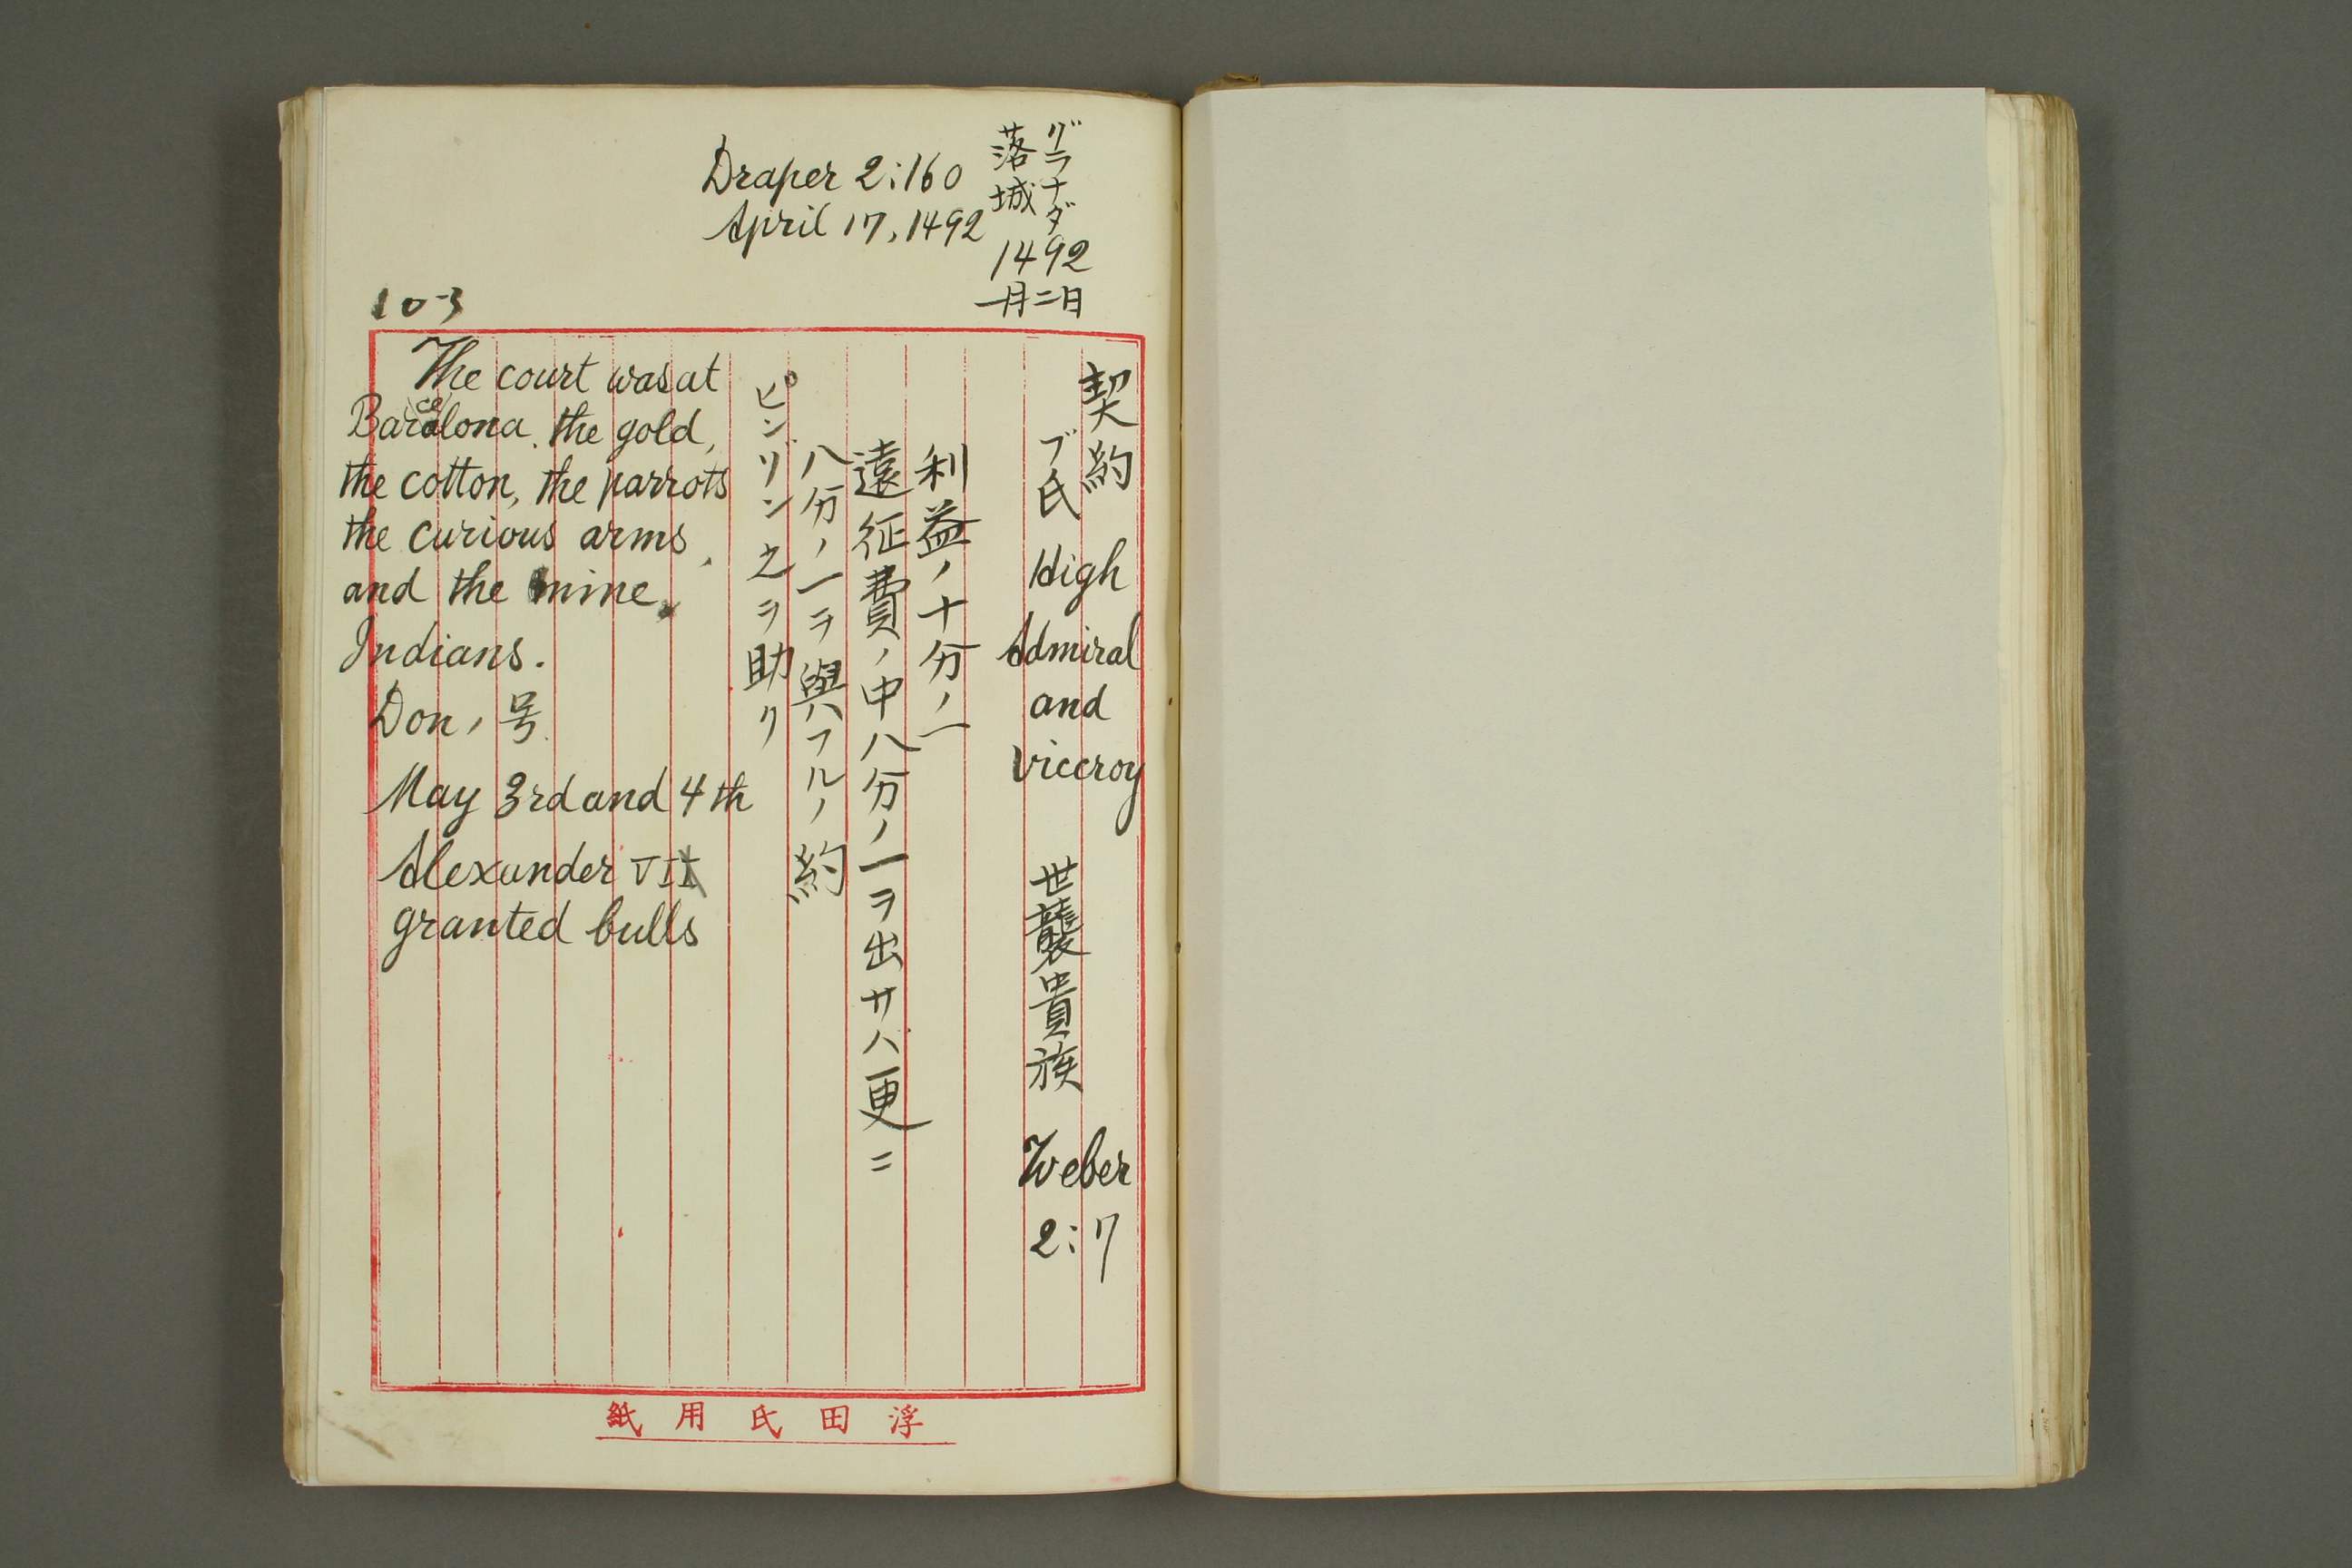 グラナダ
落城
1492
一月二日
Draper 2:160
April 17, 1492
103
契約
ブ氏
High
Admiral
and
viceroy
世襲貴族
Weber
2:7
利益ノ十分ノ一
遠征費ノ中八分ノ一ヲ出サバ更ニ
八分ノ一ヲ與フルノ約
ピンゾン之ヲ助ク
The court was at
Barcelona. the gold,
the cotton, the parrots
the curious arms,
and the nine
Indians.
Don ノ号
May 3rd and 4th
Alexander VI
granted bulls
浮田氏用紙